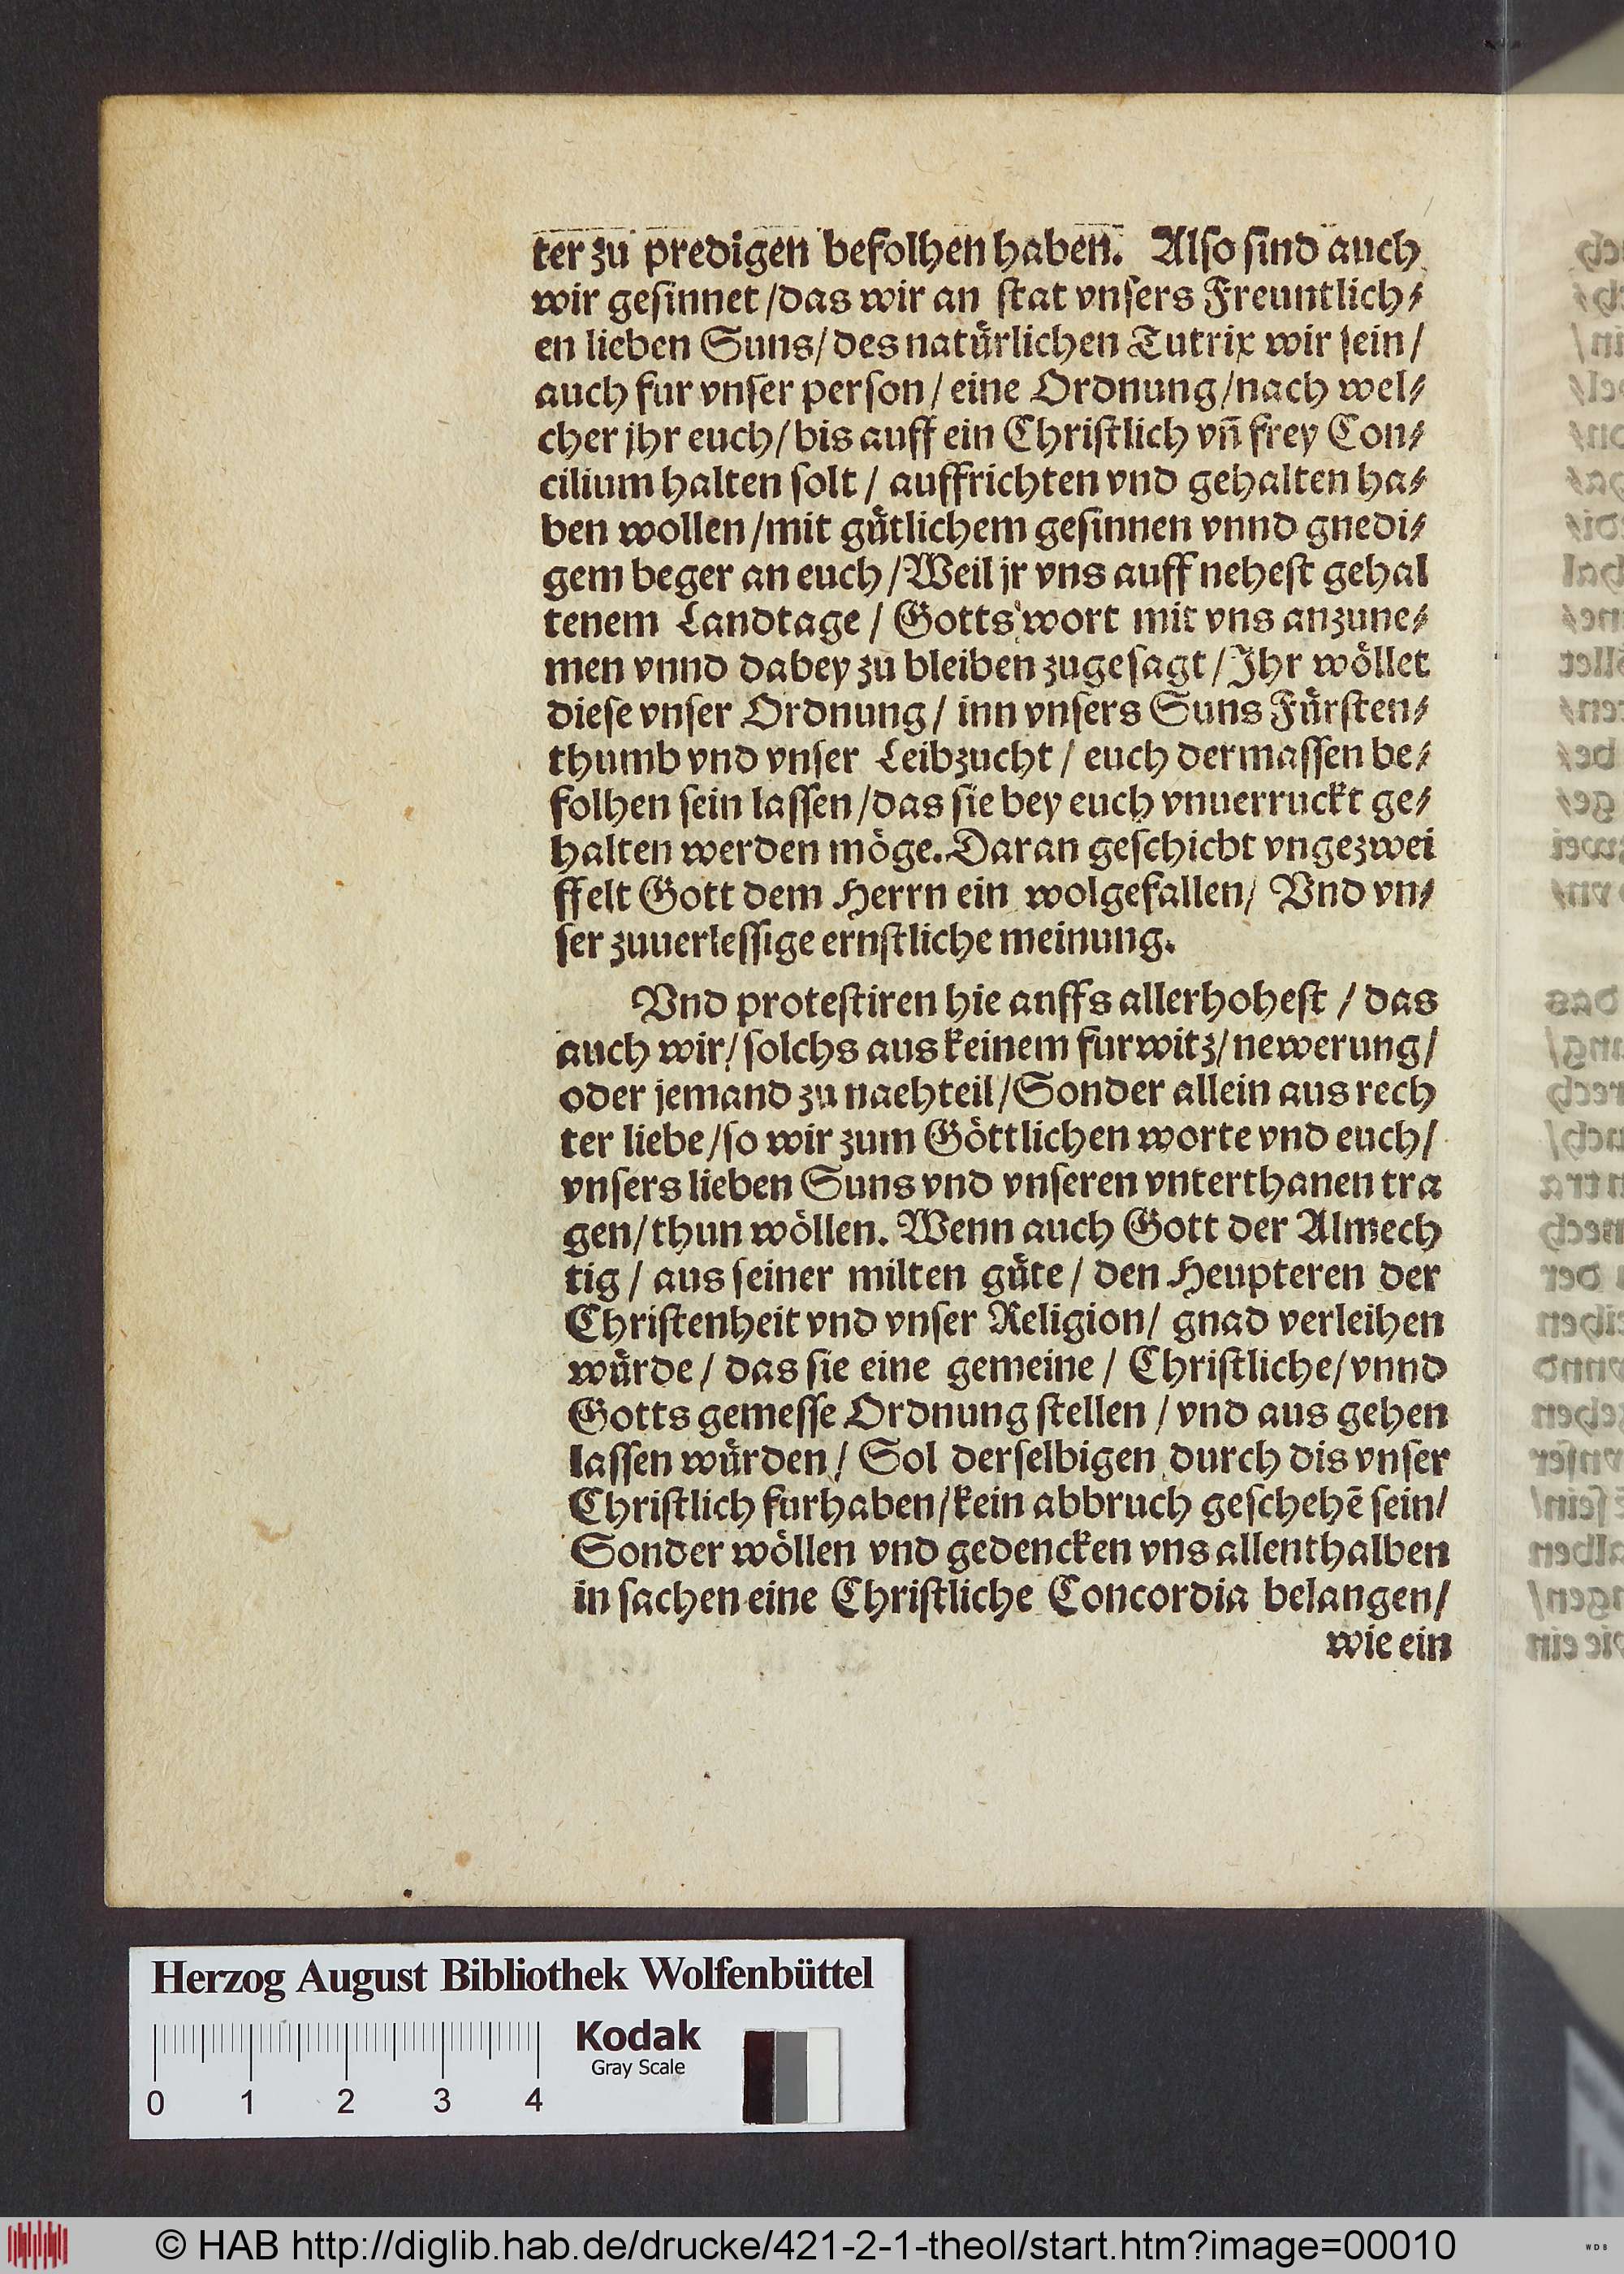 ter zu predigen befolhen haben. Also sind auch
wir gesinnet / das wir an stat vnsers Freuntlich⸗
en lieben Suns / des natürlichen Tutrix wir sein /
auch fur vnser person / eine Ordnung / nach wel⸗
cher jhr euch / bis auff ein Christlich vñ frey Con⸗
cilium halten solt / auffrichten vnd gehalten ha⸗
ben wollen / mit gütlichem gesinnen vnnd gnedi⸗
gem beger an euch / Weil jr vns auff nehest gehal
tenem Landtage / Gotts wort mit vns anzune⸗
men vnnd dabey zu bleiben zugesagt / Jhr wöllet
diese vnser Ordnung / inn vnsers Suns Fürsten⸗
thumb vnd vnser Leibzucht / euch dermassen be⸗
folhen sein lassen / das sie bey euch vnuerruckt ge⸗
halten werden möge. Daran geschicht vngezwei
ffelt Gott dem Herrn ein wolgefallen / Vnd vn⸗
ser zuuerlessige ernstliche meinung.
Vnd protestiren hie anffs allerhohest / das
auch wir / solchs aus keinem furwitz / newerung /
oder jemand zu naehteil / Sonder allein aus rech
ter liebe / so wir zum Göttlichen worte vnd euch /
vnsers lieben Suns vnd vnseren vnterthanen tra
gen / thun wöllen. Wenn auch Gott der Almech
tig / aus seiner milten güte / den Heupteren der
Christenheit vnd vnser Religion / gnad verleihen
würde / das sie eine gemeine / Christliche / vnnd
Gotts gemesse Ordnung stellen / vnd aus gehen
lassen würden / Sol derselbigen durch dis vnser
Christlich furhaben / kein abbruch geschehẽ sein /
Sonder wöllen vnd gedencken vns allenthalben
in sachen eine Christliche Concordia belangen /
wie ein
Herzog August Bibliothek Wolfenbüttel
Kodak
Gray Scale
0 1 2 3 4
© HAB http://diglib.hab.de/drucke/421-2-1-theol/start.htm?image=00010
WDB